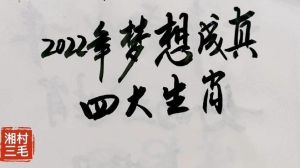 2022年梦想成真
四大生肖
湘村
三毛